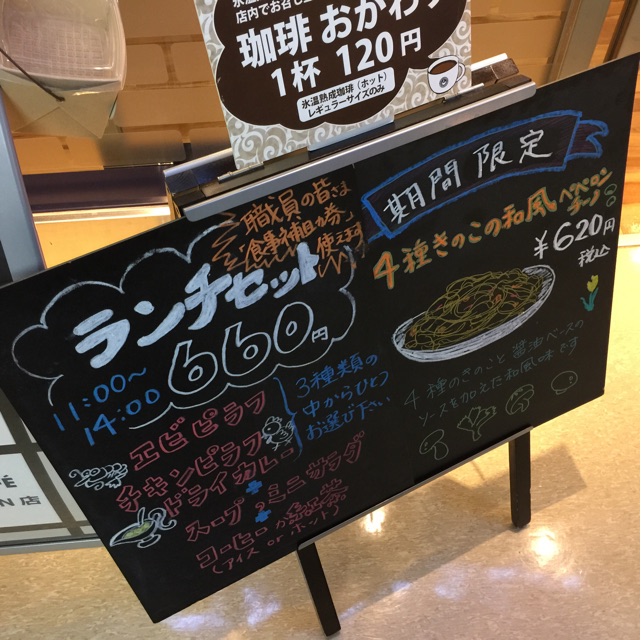 店内でお召し
珈琲 おかわり
1杯 120円
氷温熟成珈琲（ホット）
レギュラーサイズのみ
職員の皆さま
食事補助券
使えます
ランチセット
660円
11:00~
14:00
エビピラフ
チキンピラフ
ドライカレー
3種類の
中からひとつ
お選び下さい
スープ + ミニサラダ
コーヒー or 紅茶
(アイス or ホット)
期間限定
4種きのこの和風ペペロンチーノ
¥620円
税込
4種のきのこと醤油ベースの
ソースを加えた和風味です
FÉ
N店